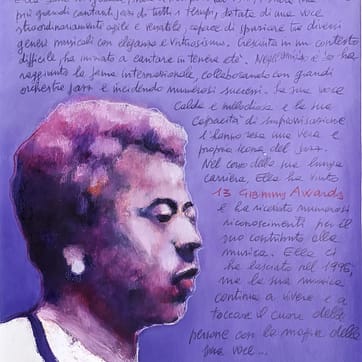 più grandi cantanti jazz di tutti i tempi, dotata di una voce
straordinariamente agile e versatile, capace di spaziare tra diversi
generi musicali con eleganza e virtuosismo. Cresciuta in un contesto
difficile, ha iniziato a cantare in tenera età. Negli anni '30 ha
raggiunto la fama internazionale, collaborando con grandi
orchestre jazz e incidendo numerosi successi. La sua voce
calda e melodiosa e la sua
capacità di improvvisazione
l'hanno resa una vera e
propria icona del jazz.
Nel corso della sua lunga
carriera, Ella ha vinto
13 GRAMMY AWARDS
e ha ricevuto numerosi
riconoscimenti per il
suo contributo alla
musica. Ella ci
ha lasciato nel 1996,
ma la sua musica
continua a vivere e a
toccare il cuore delle
persone con la magia della
sua voce...